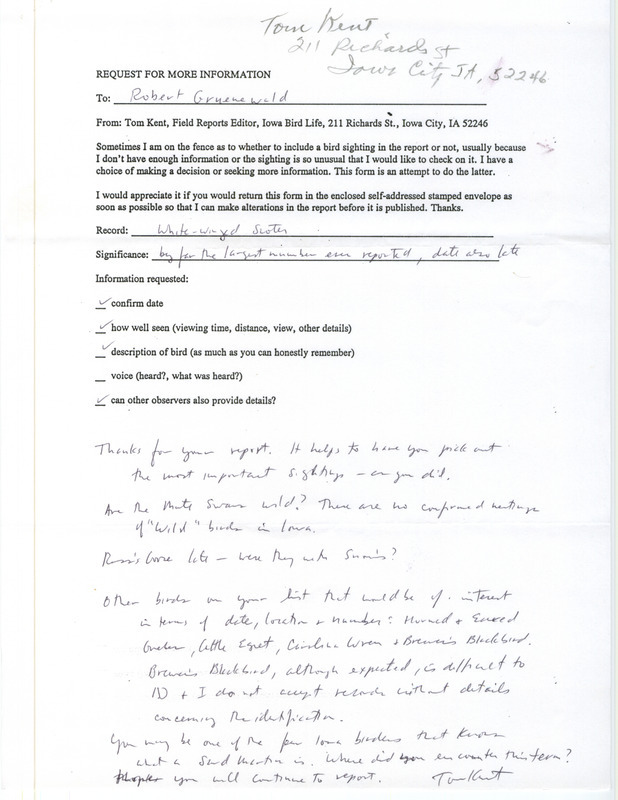 Tom Kent
211 Richards St
Iowa City IA, 52246
REQUEST FOR MORE INFORMATION
To: Robert Gruenewald
From: Tom Kent, Field Reports Editor, Iowa Bird Life, 211 Richards St., Iowa City, IA 52246
Sometimes I am on the fence as to whether to include a bird sighting in the report or not, usually because
I don't have enough information or the sighting is so unusual that I would like to check on it. I have a
choice of making a decision or seeking more information. This form is an attempt to do the latter.
I would appreciate it if you would return this form in the enclosed self-addressed stamped envelope as
soon as possible so that I can make alterations in the report before it is published. Thanks.
Record: White-winged Scoter
Significance: by far the largest number ever reported, date also late
Information requested:
✓ confirm date
✓ how well seen (viewing time, distance, view, other details)
✓ description of bird (as much as you can honestly remember)
__ voice (heard?, what was heard?)
✓ can other observers also provide details?
Thanks for your report. It helps to have you pick out
the most important sightings – as you did.
Are the Mute Swans wild? There are no confirmed nestings
of "Wild" birds in Iowa.
Ross's Goose late – were they with Snows?
Other birds on your list that would be of interest
in terms of date, location & number: Horned & Eared
Grebe, Cattle Egret, Carolina Wren & Brewer's Blackbird.
Brewer's Blackbird, although expected, is difficult to
ID & I do not accept records without details
concerning the identification.
You may be one of the few Iowa birders that knows
what a Sand Martin is. Where did you encounter this term?
you will continue to report. Tom Kent